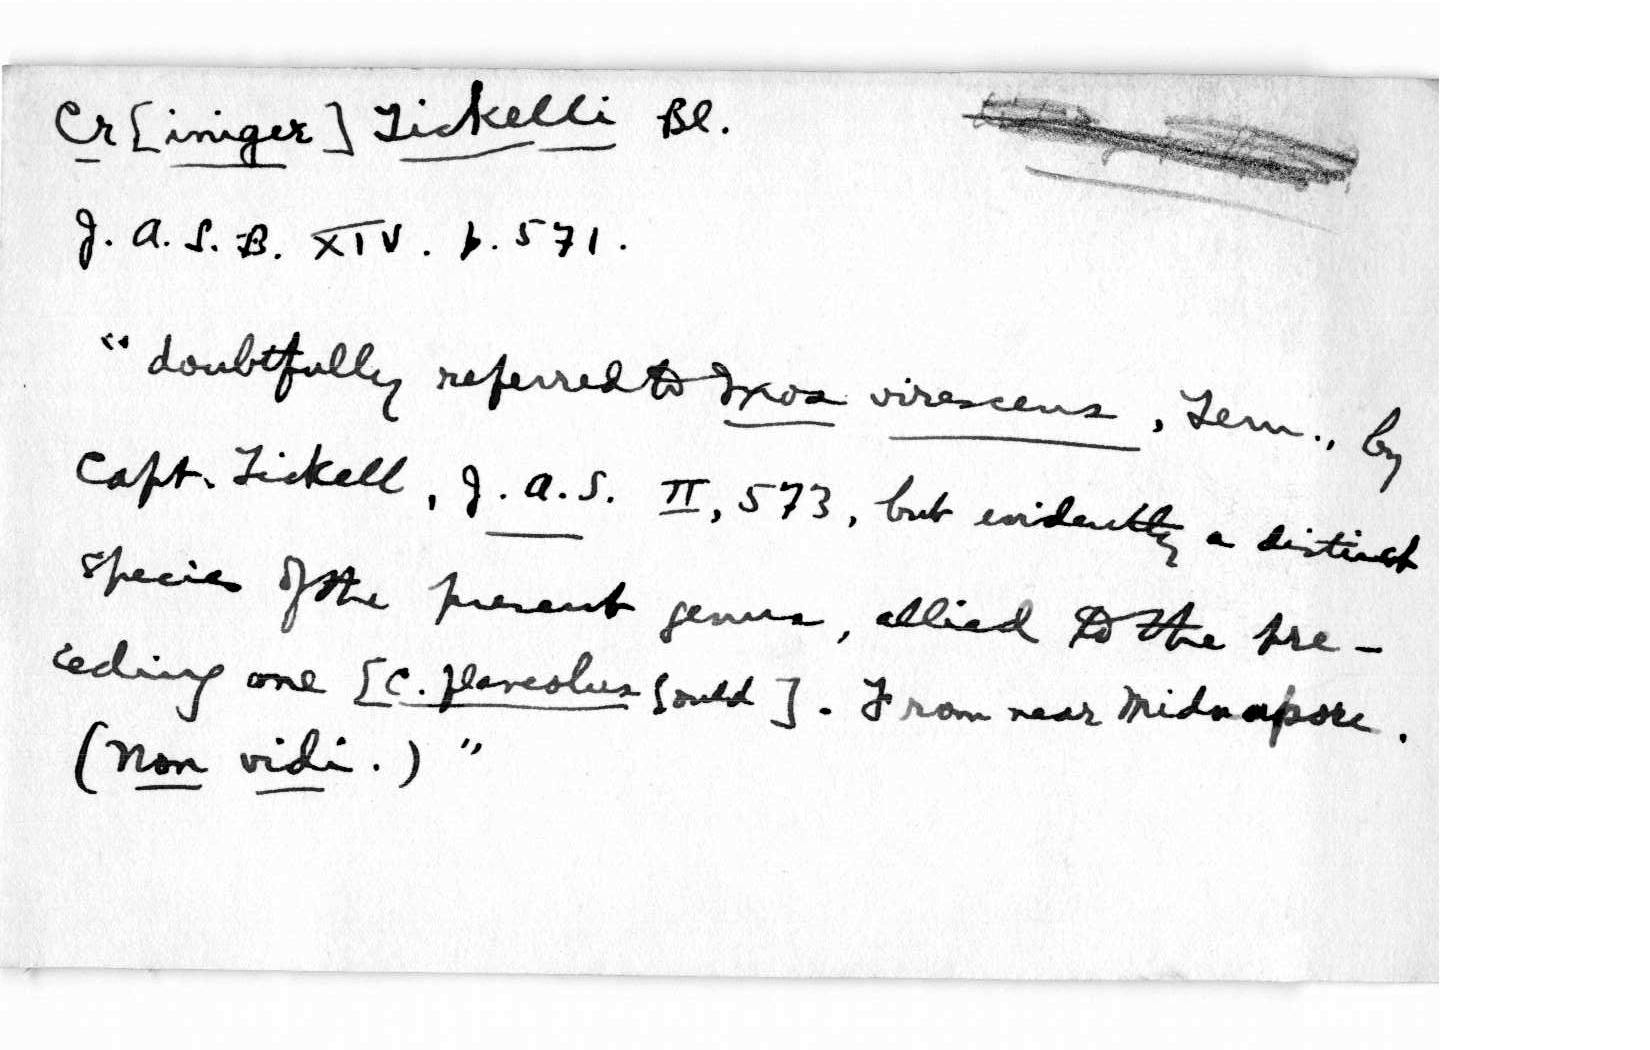 Cr[iniger] Tickelli Bl.
J. A. S. B. XIV. p. 571.
"doubtfully referred to Ixos virescens, Tem., by
Capt. Tickell, J. A. S. II, 573, but evidently a distinct
species of the present genus, allied to the pre-
ceding one [C. flaveolus Gould]. From near Midnapore.
(Non vidi.)"